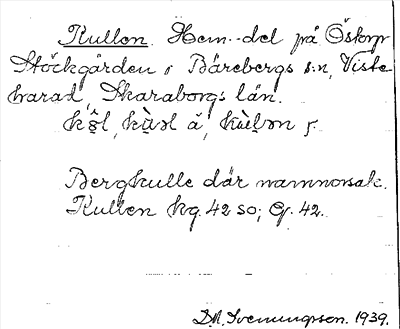 Kullen. Hem.-del på Öskorp
Stöckgården i Bärebergs s:n, Viste
härad, Skaraborgs län.
Bergkulle där namnorsak.
Kullen kg. 42 SO; G. 42.
D.A. Svenungsson. 1939.